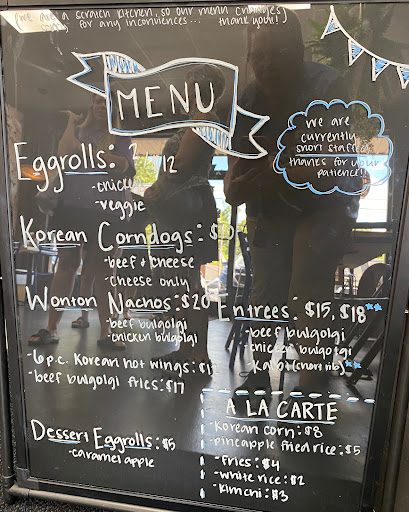 (we are a scratch kitchen, so our menu changes)
sorry for any inconviences... thank you!!
MENU
we are
currently
short staffed
thanks for your
patience!!
Eggrolls: 12
-chicken
-veggie
Korean Corndogs:
-beef + cheese
-cheese only
Wonton Nachos: $20
-beef bulgolgi
-chicken bulgolgi
-6 p.c. Korean hot wings:
-beef bulgolgi fries: $17
Dessert Eggrolls: $5
-caramel apple
Entrees: $15, $18**
-beef bulgolgi
-chicken bulgolgi
-Kalbi (short rib)**
A LA CARTE
-Korean corn: $8
-pineapple fried rice: $5
-fries: $4
-white rice: $2
-kimchi: $3